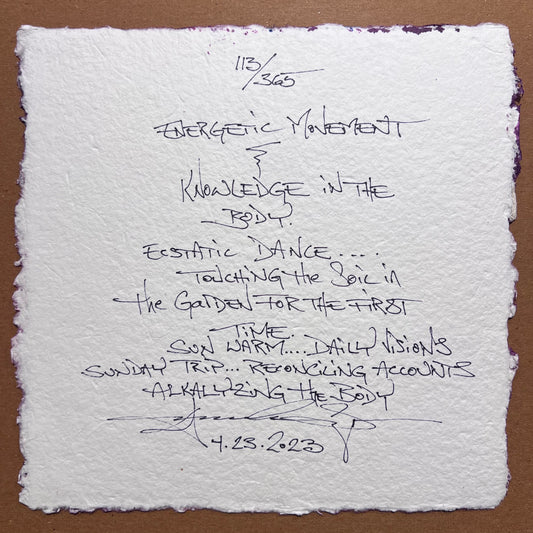 113/365
ENERGETIC MOVEMENT
&
KNOWLEDGE IN THE
BODY.
ECSTATIC DANCE.....
TOUCHING THE SOIL IN
THE GARDEN FOR THE FIRST
TIME.
SUN WARM....DAILY VISIONS
SUNDAY TRIP... RECONCILING ACCOUNTS
ALKALYZING THE BODY
4.23.2023